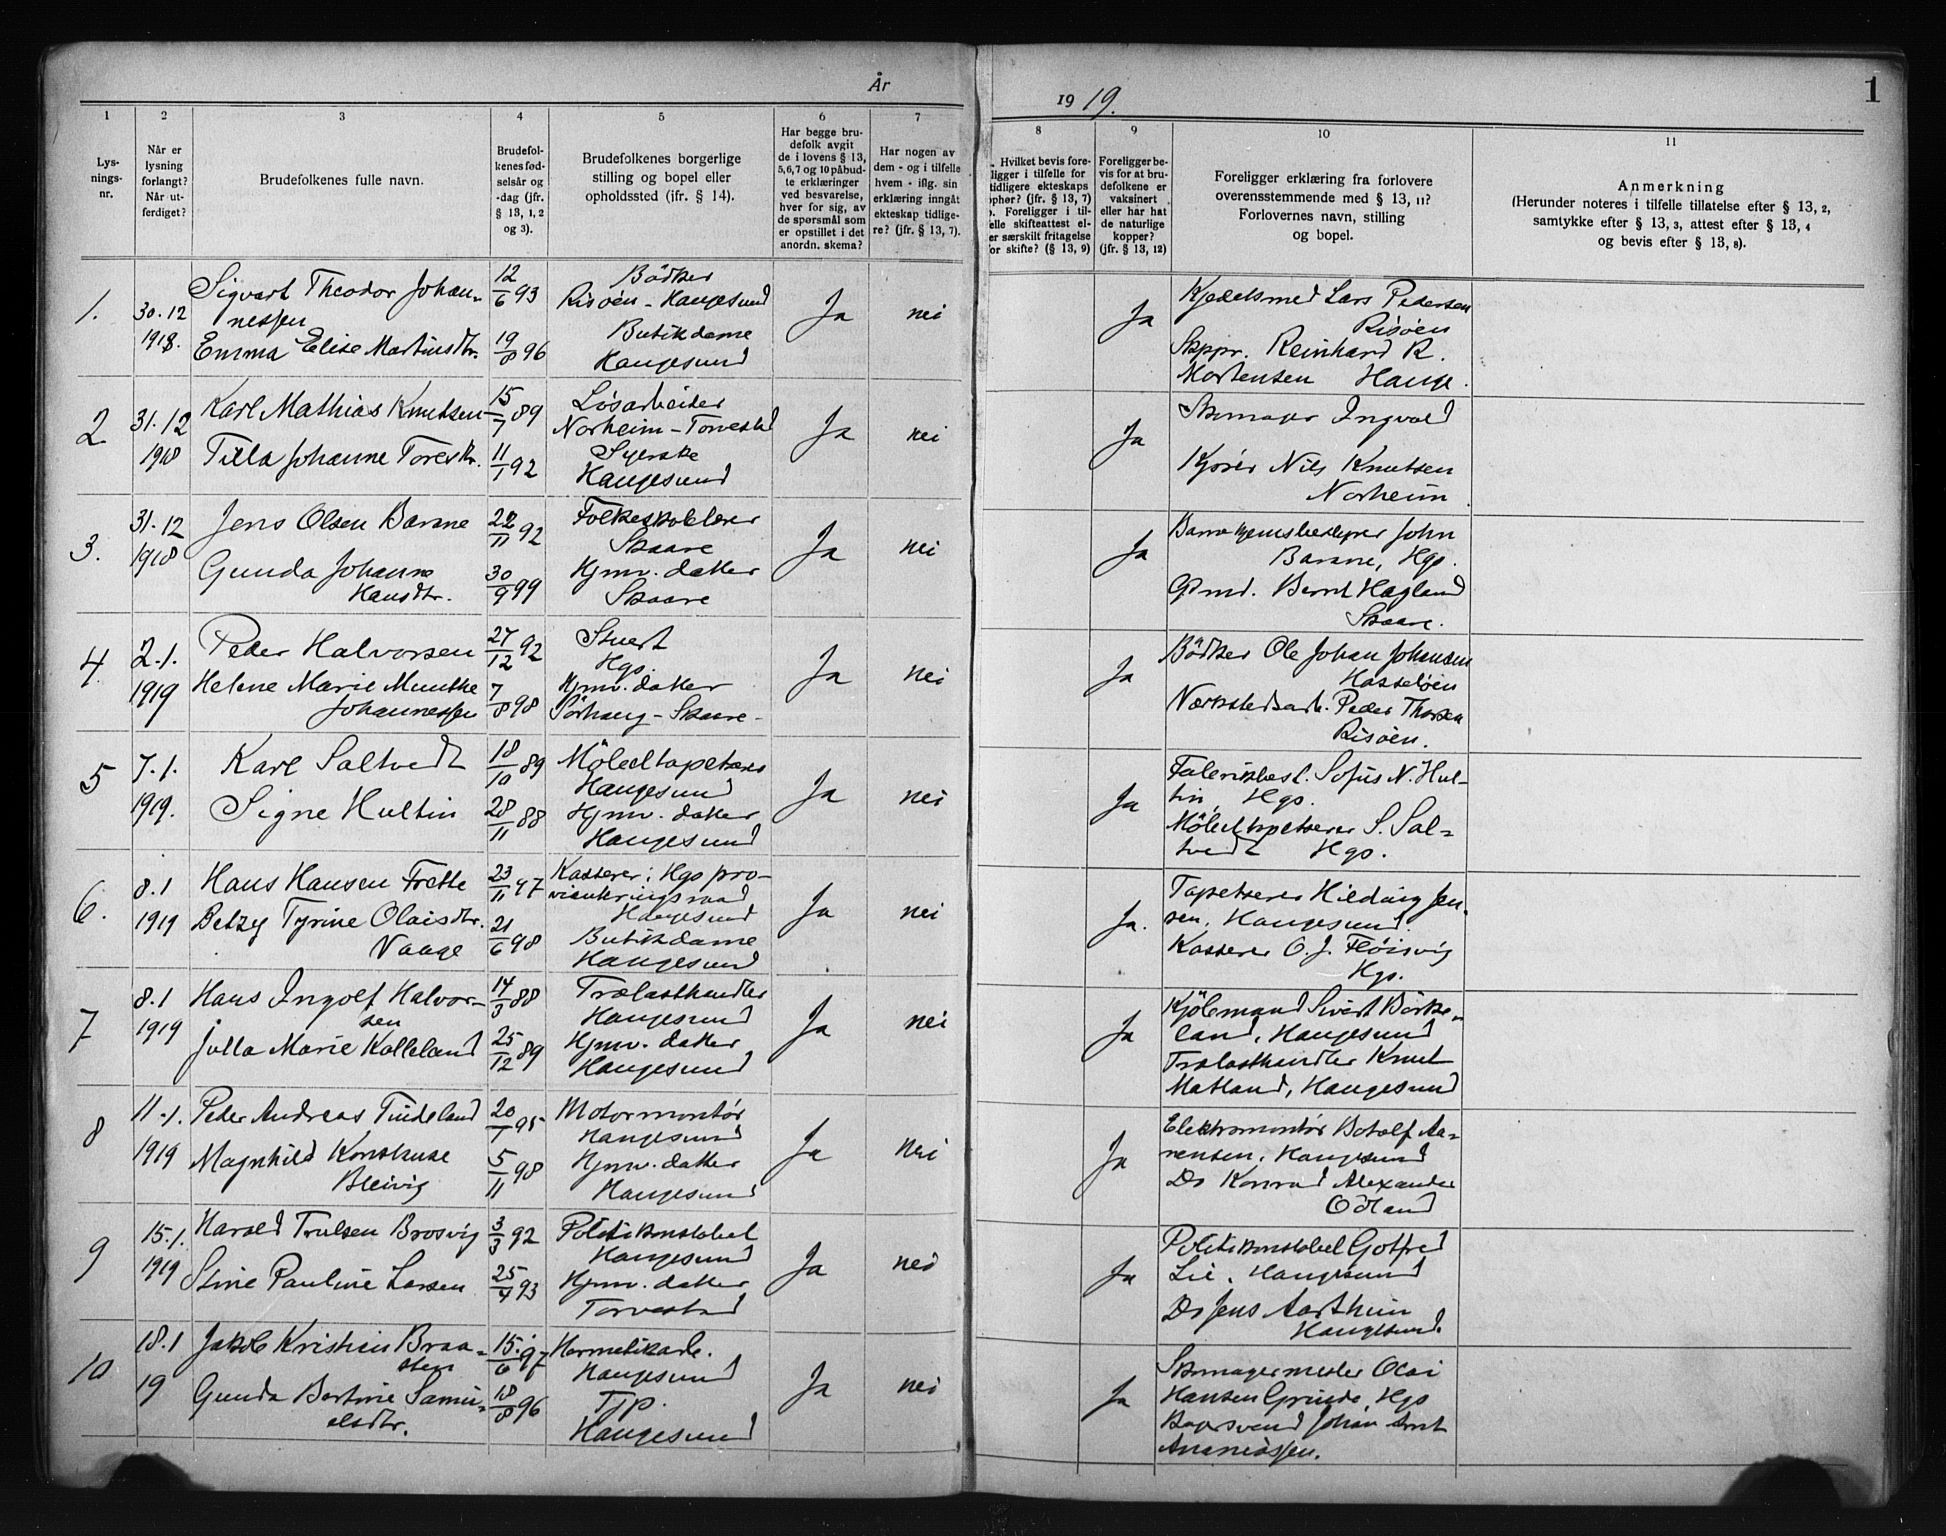 År 1919.
1
1
2
3
4
5
6
7
8
9
10
11
Lys-
nings-
nr.
Når er
lysning
forlangt?
Når ut-
ferdiget?
Brudefolkenes fulle navn.
Brudefol-
kenes fød-
selsår og
-dag (jfr.
§ 13, 1, 2
og 3).
Brudefolkenes borgerlige
stilling og bopel eller
opholdssted (jfr. § 14).
Har begge bru-
defolk avgit
de i lovens § 13,
5,6,7 og 10 påbud-
te erklæringer
ved besvarelse,
hver for sig, av
de spørsmål som
er opstillet i det
anordn. skema?
Har nogen av
dem - og i tilfelle
hvem - iflg. sin
erklæring inngått
ekteskap tidlige-
re? (jfr. § 13, 7).
Hvilket bevis fore-
ligger i tilfelle for
tidligere ekteskaps
ophør? (jfr. § 13, 7)
Foreligger i til-
felle skifteattest el-
er særskilt fritagelse
for skifte? (§ 13, 9)
Foreligger be-
vis for at bru-
defolkene er
vaksinert
eller har hat
de naturlige
kopper?
(jfr. § 13, 12)
Foreligger erklæring fra forlovere
overensstemmende med § 13, 11?
Forlovernes navn, stilling
og bopel.
Anmerkning
(Herunder noteres i tilfelle tillatelse efter § 13, 2,
samtykke efter § 13, 3, attest efter § 13, 4
og bevis efter § 13, 8).
1.
30.12
1918.
Sigvart Theodor Johan-
nessen
Emma Elise Martinsdtr.
12/6 93
19/8 96
Bödker
Risöen - Haugesund
Butikdame
Haugesund
Ja
nei
Ja
Kjedelsmed Lars Pedersen
Risöen
Skppr. Reinhard R.
Mortensen Hauge.
2
31.12
1918
Karl Mathias Knutsen
Tilla Johanne Toresdtr.
15/7 89
11/1 92
Løsarbeider
Norheim - Torvestad
Syerske
Haugesund
Ja
nei
Ja
Skomager Ingvald
Kjører Nils Knutsen
Norheim
3.
31.12
1918
Jens Olsen Barane
Gunda Johanne
Hansdtr.
22/11 92
30/9 99
Folkeskolelærer
Skaare
Hjmv. datter
Skaare
Ja
nei
Ja
Barnehjemsbestyrer John
Barane, Hgs.
Gbmd. Bernt Hagland
Skaare.
4.
2.1.
1919
Peder Halvorsen
Helene Marie Munthe
Johannessen
27/12 92
7/8 98
Stuert
Hgs.
Hjmv. datter
Sörhaug - Skaare -
Ja
nei
Ja
Bödker Ole Johan Johansen
Hasseløen
Værkstedsarb. Peder Thorsen
Risöen.
5
7.1.
1919.
Karl Saltvedt
Signe Hultin
18/10 89
28/11 88
Möbeltapetserer
Haugesund
Hjmv. datter
Haugesund
Ja
nei
Ja
Fabrikbest. Sofus N. Hul-
tin, Hgs.
Möbeltapetserer S. Sal-
tvedt Hgs.
6.
8.1
1919
Hans Hansen Frette
Betzy Tyrine Olaisdtr.
Vaage
23/11 97
21/6 98
Kasserer i Hgs pro-
vianteringsraad
Haugesund
Butikdame
Haugesund
Ja
nei
Ja.
Tapetserer Hilding Jen-
sen, Haugesund.
Kasserer O. J. Fløisvig
Hgs.
7
8.1
1919
Hans Ingolf Halvor-
sen
Julla Marie Kalleland
14/3 88
25/12 89
Trælasthandler
Haugesund
Hjmv. datter
Haugesund
Ja
nei
Ja
Kjöbmand Sivert Börke-
land, Haugesund
Trælasthandler Knut
Matland, Haugesund
8
11.1.
1919
Peder Andreas Tindeland
Magnhild Konstanse
Bleivig
20/1 95
5/11 98
Motormontör
Haugesund
Hjmv. datter
Haugesund
Ja
nei
Ja
Elektromontör Botolf Aa-
rensen, Haugesund
Do Konrad Alexander
Odland
9
15.1.
1919
Harald Trulsen Brosvig
Stine Pauline Larsen
3/3 92
25/4 93
Politikonstabel
Haugesund
Hjmv. datter
Torvestad
Ja
nei
Ja
Politikonstabel Gotfred
Lie, Haugesund
Do Jens Aartheim
Haugesund.
10
18.1
19
Jakob Kristian Braa-
sten
Gunda Bertine Samu-
elsdtr.
15/6 97
18/8 96
Hermetikarb.
Haugesund
Tjp.
Haugesund
Ja
nei
Ja
Skomagermester Olai
Hansen Grinde, Hgs
Bagersvend Johan Arnt
Ananiassen.